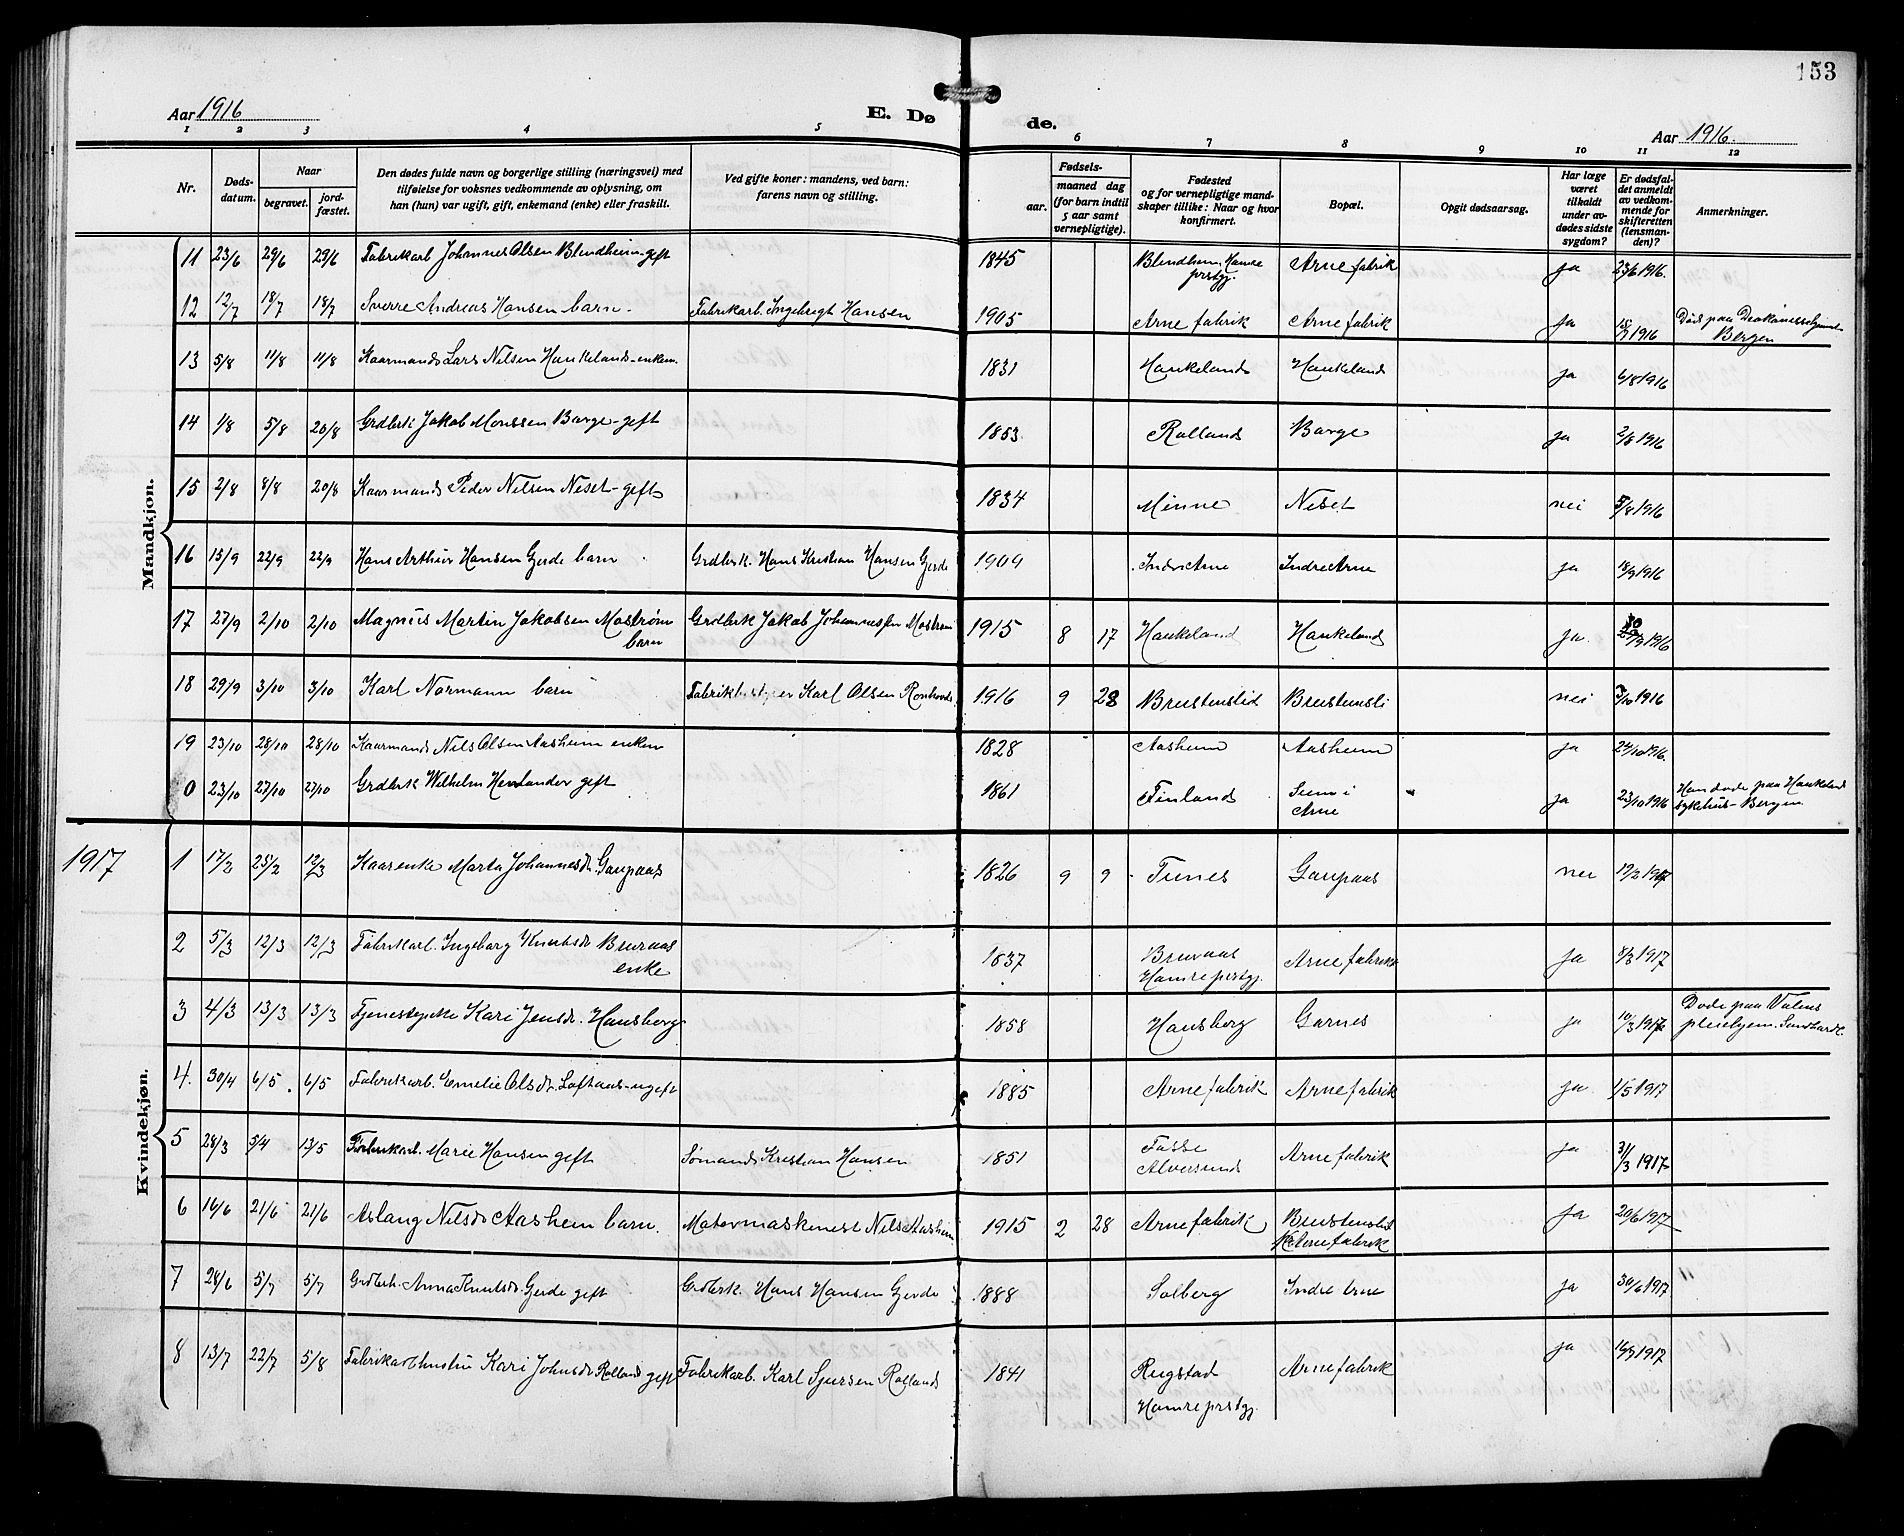 153
Aar 1916
E. Dø
de.
Aar 1916.
1 2 3 4 5 6 7 8 9 10 11 12
Nr.
Døds-
datum.
Naar
begravet.
jord-
fæstet.
Den dødes fulde navn og borgerlige stilling (næringsvei) med
tilføielse for voksnes vedkommende av oplysning, om
han (hun) var ugift, gift, enkemand (enke) eller fraskilt.
Ved gifte koner: mandens, ved barn:
farens navn og stilling.
Fødsels-
aar.
maaned dag
(for barn indtil
5 aar samt
vernepligtige).
Fødested
og for vernepligtige mand-
skaper tillike: Naar og hvor
konfirmert.
Bopæl.
Opgit dødsaarsag.
Har læge
været
tilkaldt
under av-
dødes sidste
sygdom?
Er dødsfal-
det anmeldt
av vedkom-
mende for
skifteretten
(lensman-
den)?
Anmerkninger.
Mandkjøn.
11 23/6 29/6 29/6 Fabrikarb Johannes Olsen Blindheim-gift 1845 Blindheim, Hamre prstgj. Arne fabrik ja 23/6 1916.
12 12/7 18/7 18/7 Sverre Andreas Hansen barn. Fabrikarb. Ingebregt Hansen 1905 Arne fabrik Arne fabrik ja 15/7 1916 Død paa Bergen
13 5/8 11/8 11/8 Kaarmand Lars Nilsen Haukeland-enkem. 1831 Haukeland Haukeland ja 6/8 1916
14 1/8 5/8 20/8 Grdbrk Jakob Monssen Borge-gift 1853. Rolland Borge ja 2/8 1916
15 2/8 8/8 20/8 Kaarmand Peder Nilsen Neset-gift 1834 Minne Neset nei 5/8 1916
16 15/9 22/9 22/9 Hans Arthur Hansen Gjerde barn Grdbrk. Hans Kristian Hansen Gjerde 1909 Indre Arne Indre Arne ja 18/9 1916
17 27/9 2/10 2/10 Magnus Martin Jakobsen Mostrøm barn Grdbrk Jakob Johannessen Mostrøm 1915 8 17 Haukeland Haukeland ja. 30/9 1916
18 29/9 3/10 3/10 Karl Normann barn Karl Olsen 1916 9 28 Brustenslid Brustensli nei 3/10 1916
19 23/10 28/10 28/10 Kaarmand Nils Olsen Aasheim enkem 1828 Aasheim Aasheim ja 24/10 1916.
0 23/10 27/10 27/10 Grdbrk Wilhelm gift 1861 Finland Seim i Arne ja 23/10 1916 Han døde paa Haukeland sykehus-Bergen
1917
Kvindekjøn.
1 17/2 25/2 12/3 Kaarenke Marta Johannesdt. Gaupaas 1826 9 9 Tunes Gaupaas nei 19/2 1917
2 5/3 12/3 12/3 Fabrikarb. Ingeborg Knutsdt Bruraas enke 1837 Bruraas Hamre prstgj. Arne fabrik ja 8/3 1917
3 4/3 13/3 13/3 Tjenestepike Kari Jensdt. Hansberg 1858 Hansberg Garnes ja 10/3 1917 Døde paa Valens pleiehjem. Sundhordl.
4. 30/4 6/5. 6/5 Fabrikarb. Emelie Olsdt. Lofthus-ugift 1885 Arne fabrik Arne fabrik ja 1/5 1917
5 28/3 5/4 13/5 Fabrikarb. Marie Hansen gift Sømand Kristian Hansen 1851 Fosse Alversund Arne fabrik ja 31/3 1917
6 16/6 21/6 21/6 Aslaug Nilsdt Aasheim barn. Motormaskinist Nils Aasheim 1915 2 28 Arne fabrik Brustenslid Arne fabrik ja 20/6 1917
7 28/6 5/7 5/7 Grdbrk. Anna Knutsdt. Gjerde gift Grdbrk Hans Hansen Gjerde 1888 Solberg Indre Arne ja 30/6 1917
8 13/7 22/7 5/8 Fabrikarbhustru Kari Johnsdt Rolland gift Fabrikarb. Karl Sjursen Rolland 1841 Rugstad Hamre prstgj. Arne fabrik ja 1917